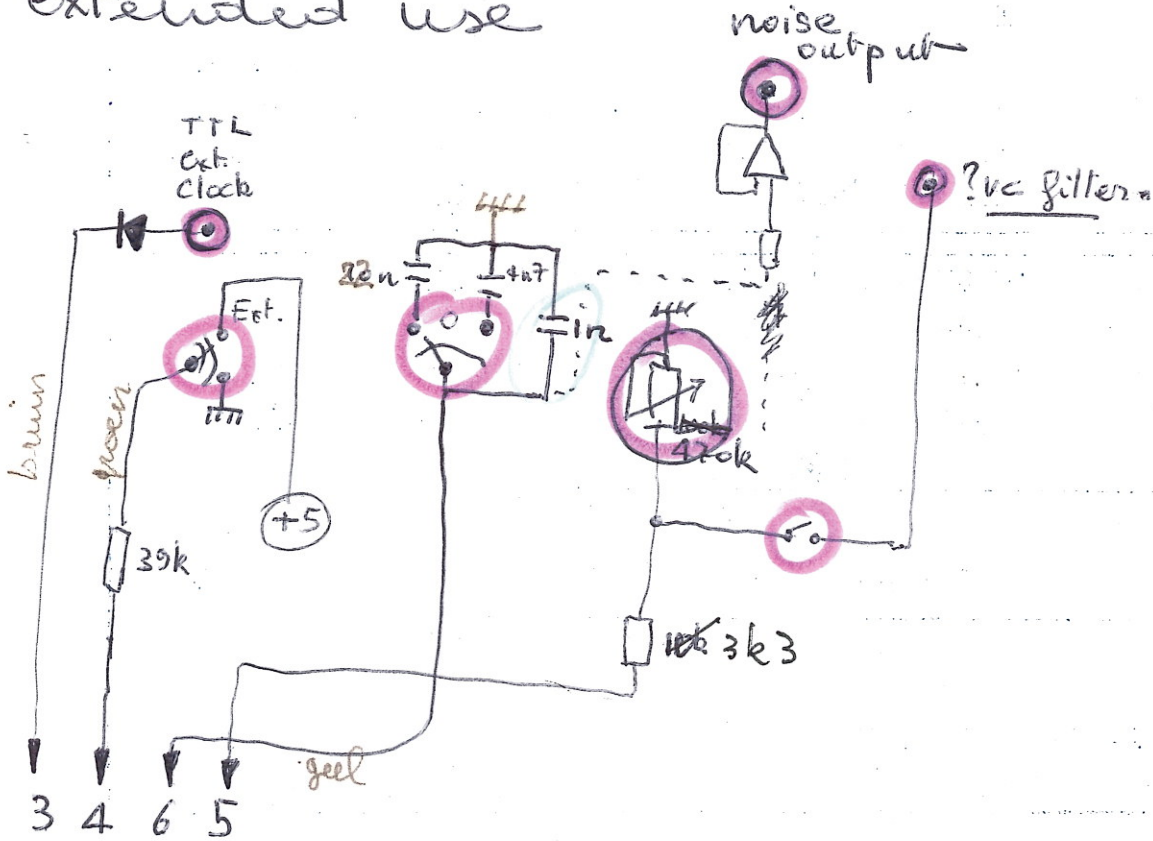 extended use
noise
output
TTL
Ext.
Clock
?vc filter.
22n
4n7
1n
Ext.
470k
bruin
groen
+5
39k
3k3
geel
3 4 6 5